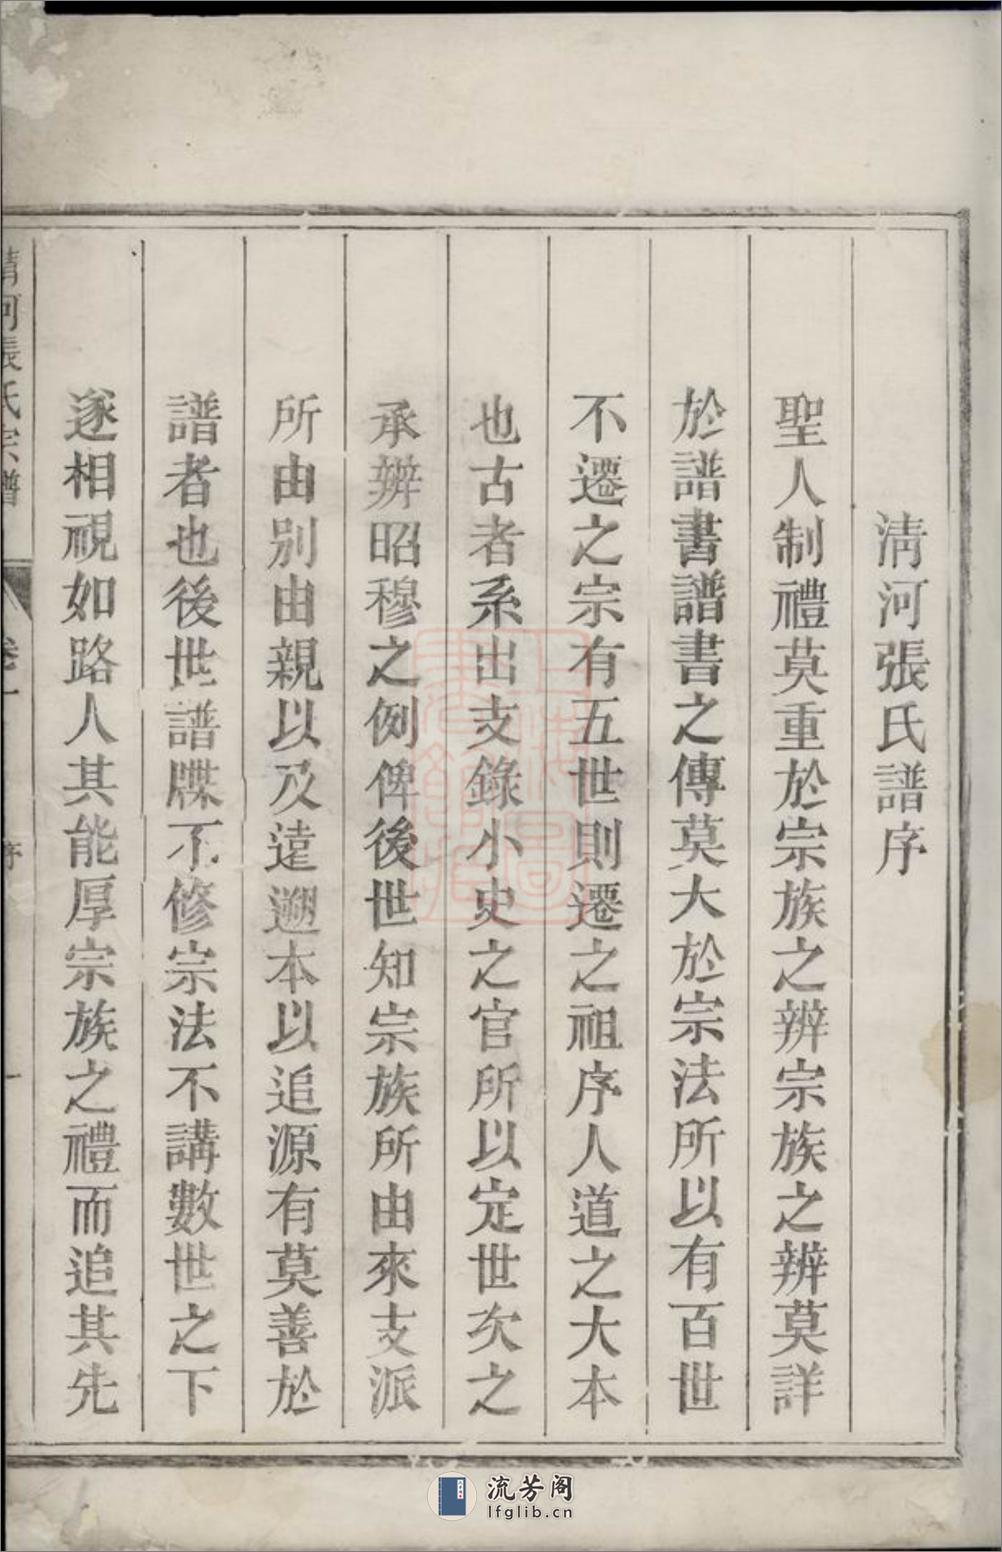 清河張氏譜序
聖人制禮莫重於宗族之辨宗族之辨莫詳
於譜書譜書之傳莫大於宗法所以有百世
不遷之宗有五世則遷之祖序人道之大本
也古者系出支錄小史之官所以定世次之
承辨昭穆之例俾後世知宗族所由來支派
所由別由親以及遠遡本以追源有莫善於
譜者也後世譜牒不修宗法不講數世之下
遂相視如路人其能厚宗族之禮而追其先
清河張氏宗譜
卷一
序
一
流芳阁
lfglib.cn